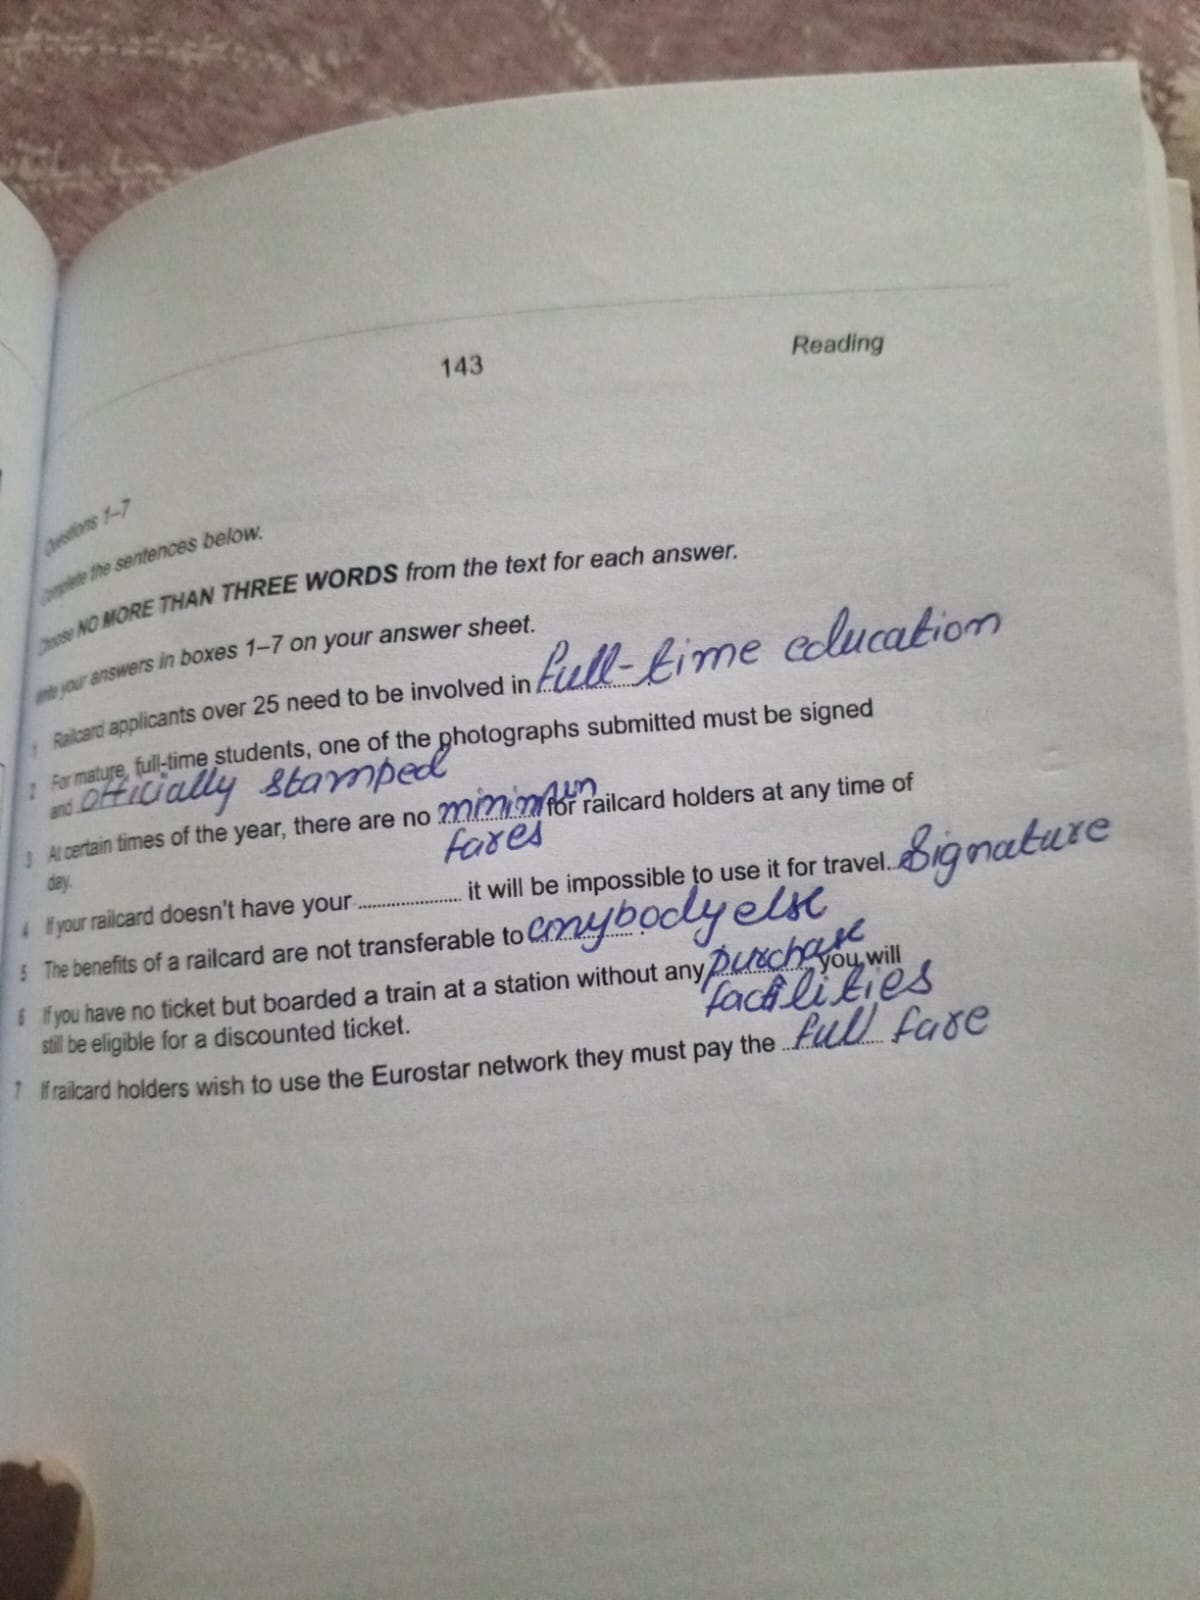 143 Reading
Questions 1–7
Complete the sentences below.
Choose NO MORE THAN THREE WORDS from the text for each answer.
Write your answers in boxes 1–7 on your answer sheet.
1 Railcard applicants over 25 need to be involved in full-time education
2 For mature, full-time students, one of the photographs submitted must be signed
and officially stamped
3 At certain times of the year, there are no minimum for railcard holders at any time of
fares
day.
4 If your railcard doesn't have your .................... it will be impossible to use it for travel. Signature
5 The benefits of a railcard are not transferable to anybody else
6 If you have no ticket but boarded a train at a station without any purchase you will
facilities
still be eligible for a discounted ticket.
7 If railcard holders wish to use the Eurostar network they must pay the full fare